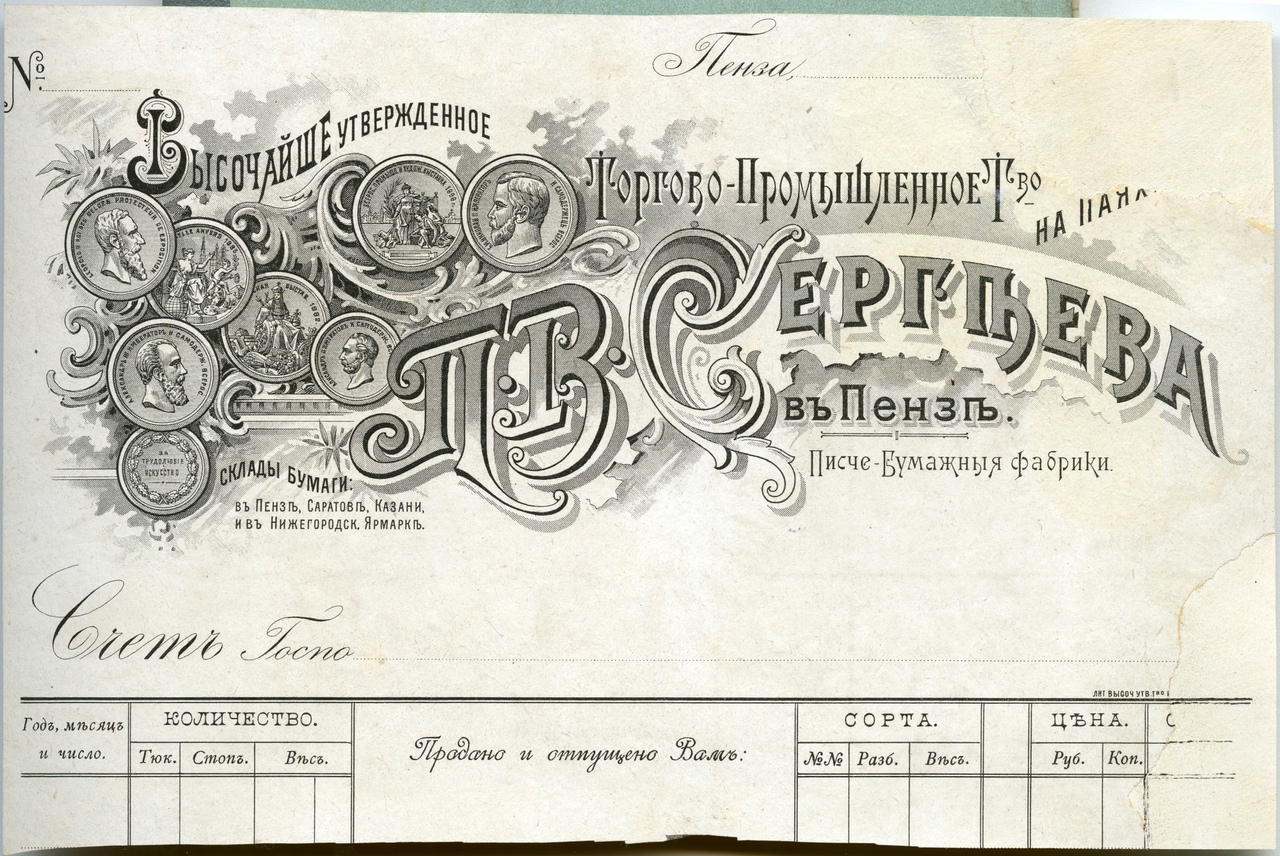 №
Пенза,
Высочайше утвержденное
Торгово-Промышленное Тво
на паях
П.В. Сергѣева
въ Пензѣ.
Писче-Бумажныя фабрики.
ЗА ТРУДОЛЮБІЕ И ИСКУССТВО
Склады бумаги:
въ Пензѣ, Саратовѣ, Казани,
и въ Нижегородск. Ярмаркѣ.
Счетъ Госпо
ЛИТ ВЫСОЧ УТВ ТВО
Годъ, мѣсяцъ и число.
КОЛИЧЕСТВО.
Тюк. Стопъ. Вѣсъ.
Продано и отпущено Вамъ:
СОРТА.
№№ Разб. Вѣсъ.
ЦѢНА.
Руб. Коп.